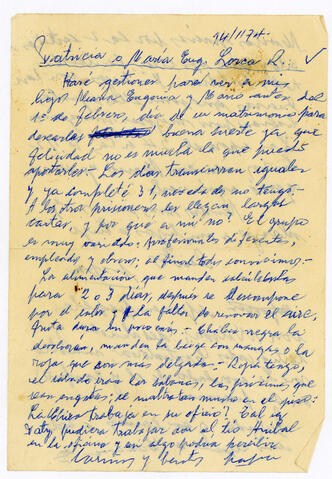 24/1/74.
Patricia o María Eug. Lorca R.
Haré gestiones para ver a mis
hijos María Eugenia y Mario antes del
1º de Febrero, día de su matrimonio para
desearles buena suerte ya que
felicidad no es mucha la que puedo
aportarles.- Los días transcurren iguales
y ya completé 31, novedad no tengo.-
A los otros prisioneros les llegan largas
cartas, y por que a mi no? El grupo
es muy variado: Profesionales diferentes,
empleados y obreros, al final todos convivimos.-
La alimentación que manden calcúlenla
para 2 o 3 días, después se descompone
por el calor y la falta de renovar el aire,
fruta dura en pocas.- Chaleco negro lo
devolveré, manden la beige con mangas o la
roja que son mas delgados.- Ropa tengo,
el sábado irán las sábanas, las próximas que
sean angulas; se maltratan mucho en el piso.
trabaja en su oficio? Tal vez
Paty pudiera trabajar con el tío Aníbal
en la oficina y en algo podría percibir
Cariños y besos papá